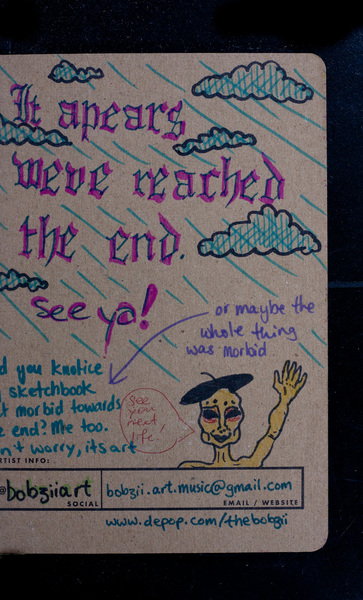 It apears
weve reached
the end.
see ya!
or maybe the
whole thing
was morbid
d you knotice
sketchbook
t morbid towards
e end? Me too.
n't worry, its art
see
you
next
life.
ARTIST INFO:
@Dobziiart
SOCIAL
bobzii.art.music@gmail.com
EMAIL / WEBSITE
www.depop.com/thebobzii